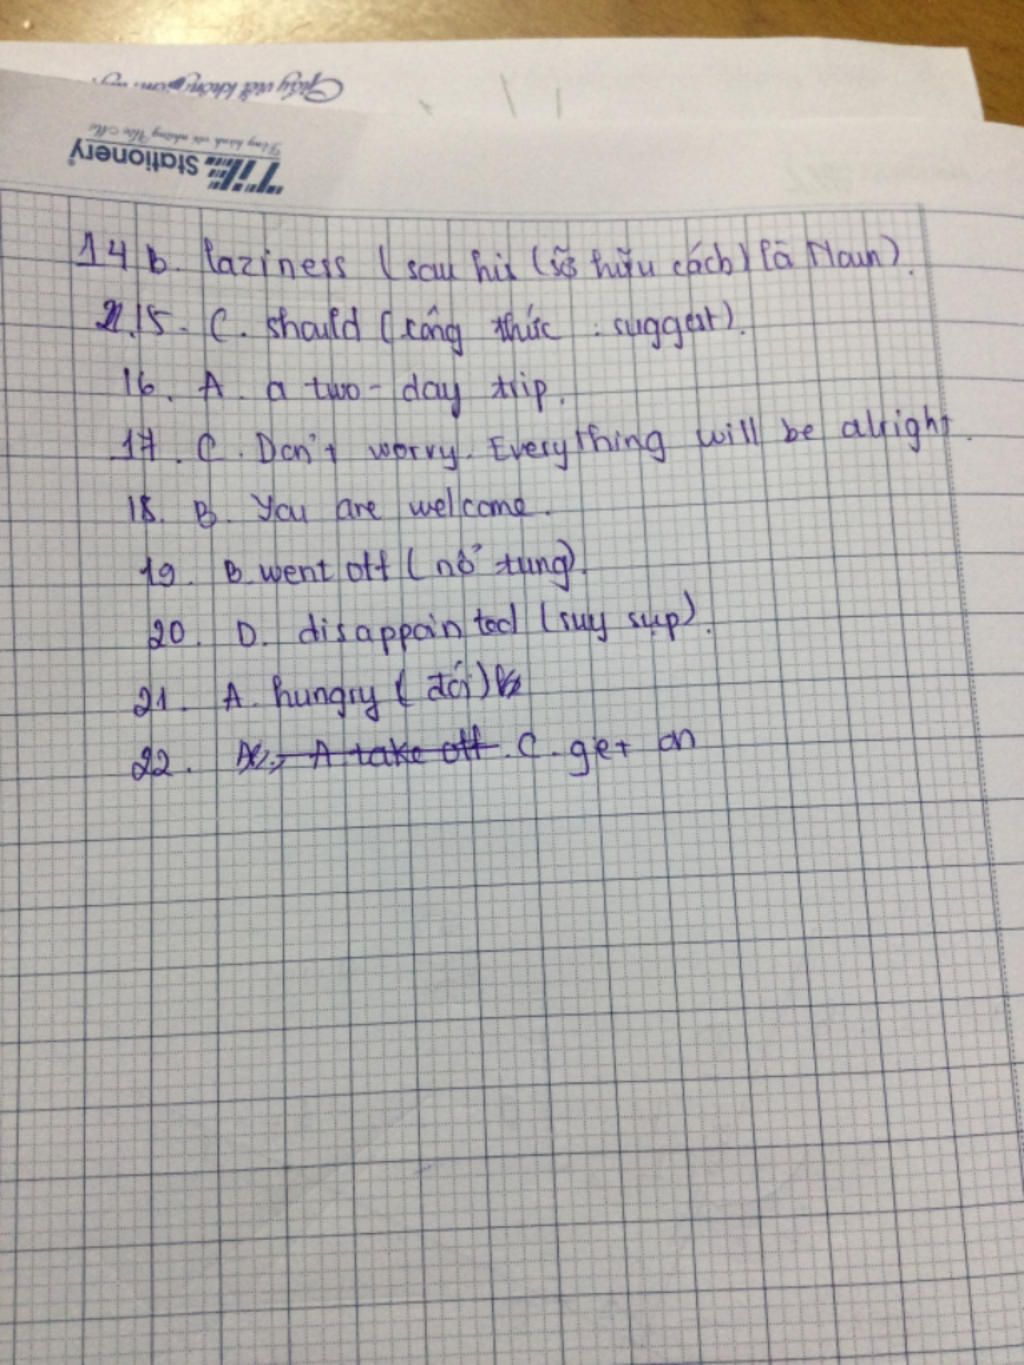 Giấy viết không
TIE Stationery
14 b. laziness (sau his (sỡ hữu cách) là Noun).
15. C. should (công thức : suggest).
16. A. a two-day trip.
17. C. Don't worry. Everything will be alright.
18. B. You are welcome.
19. B. went off (nổ tung).
20. D. disappointed (suy sụp).
21. A. hungry (đói)
22. A take off. C. get on